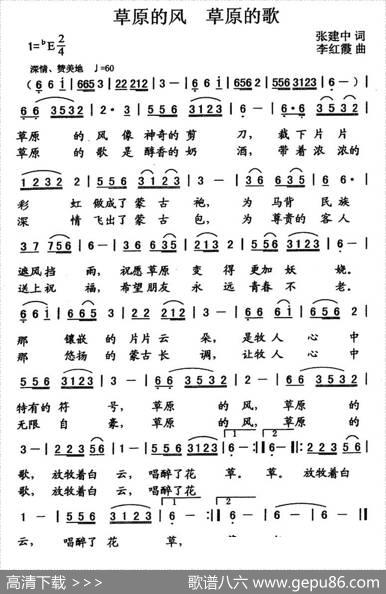 草原的风 草原的歌
张建中 词
1=♭E 2/4
李红霞 曲
深情、赞美地 ♩=60
(6 6 i | 6653 | 22212 | 3 - | 6 6 i | 656 2 | 556 3123 | 6 - |
6 6 3532 | 2 - | 5 5 6 3123 | 3 - | 6·6 3532 |
草原 的 风 像 神奇的 剪 刀, 裁下 片片
草原 的 歌 是 醇香的 奶 酒, 带着 浓浓的
1232 2 | 5 5 6 3123 | 3 - | 36 635 | 6 6· |
彩 虹 做成了 蒙古 袍, 为 马背 民族
深 情 飞出了 蒙古 包, 为 尊贵的 客人
37 756 | 6 - | 36 635 | 2 213 | 5556 3123 | 6 - |
遮风挡 雨, 祝愿 草原 变 得 更加 妖 娆。
送上祝 福, 希望 朋友 永 远 青春 不 老。
6 6 i | 6 6 5 3 | 2 2 2 1 2 | 3 - | 6 6 i | 656 2 |
那 镶嵌 的 片片 云 朵, 是牧人 心中
那 悠扬 的 蒙古 长 调, 让牧人 心中
5 5 6 3123 | 3 - | 6 6 3532 | 2 - | 6 6 3532 |
特有的 符 号, 草原 的 风, 草原 的
无限 自 豪, 草原 的 风, 草原 的
3 - | 2 2 3 5 6 | 1 - | 5 5 6 3123 | 6 - :| 6 - | 2 2 3 5 6 |
歌, 放牧着白 云, 唱醉了花 草。 草。 放牧着白
歌, 放牧着白 云, 唱醉了花
1 - | 5 5 6 | 3123 | 6 - | 6 - :| 6 - | 6 - ‖
云, 唱醉了 花 草,
高清下载 >>>
歌谱八六 www.gepu86.com